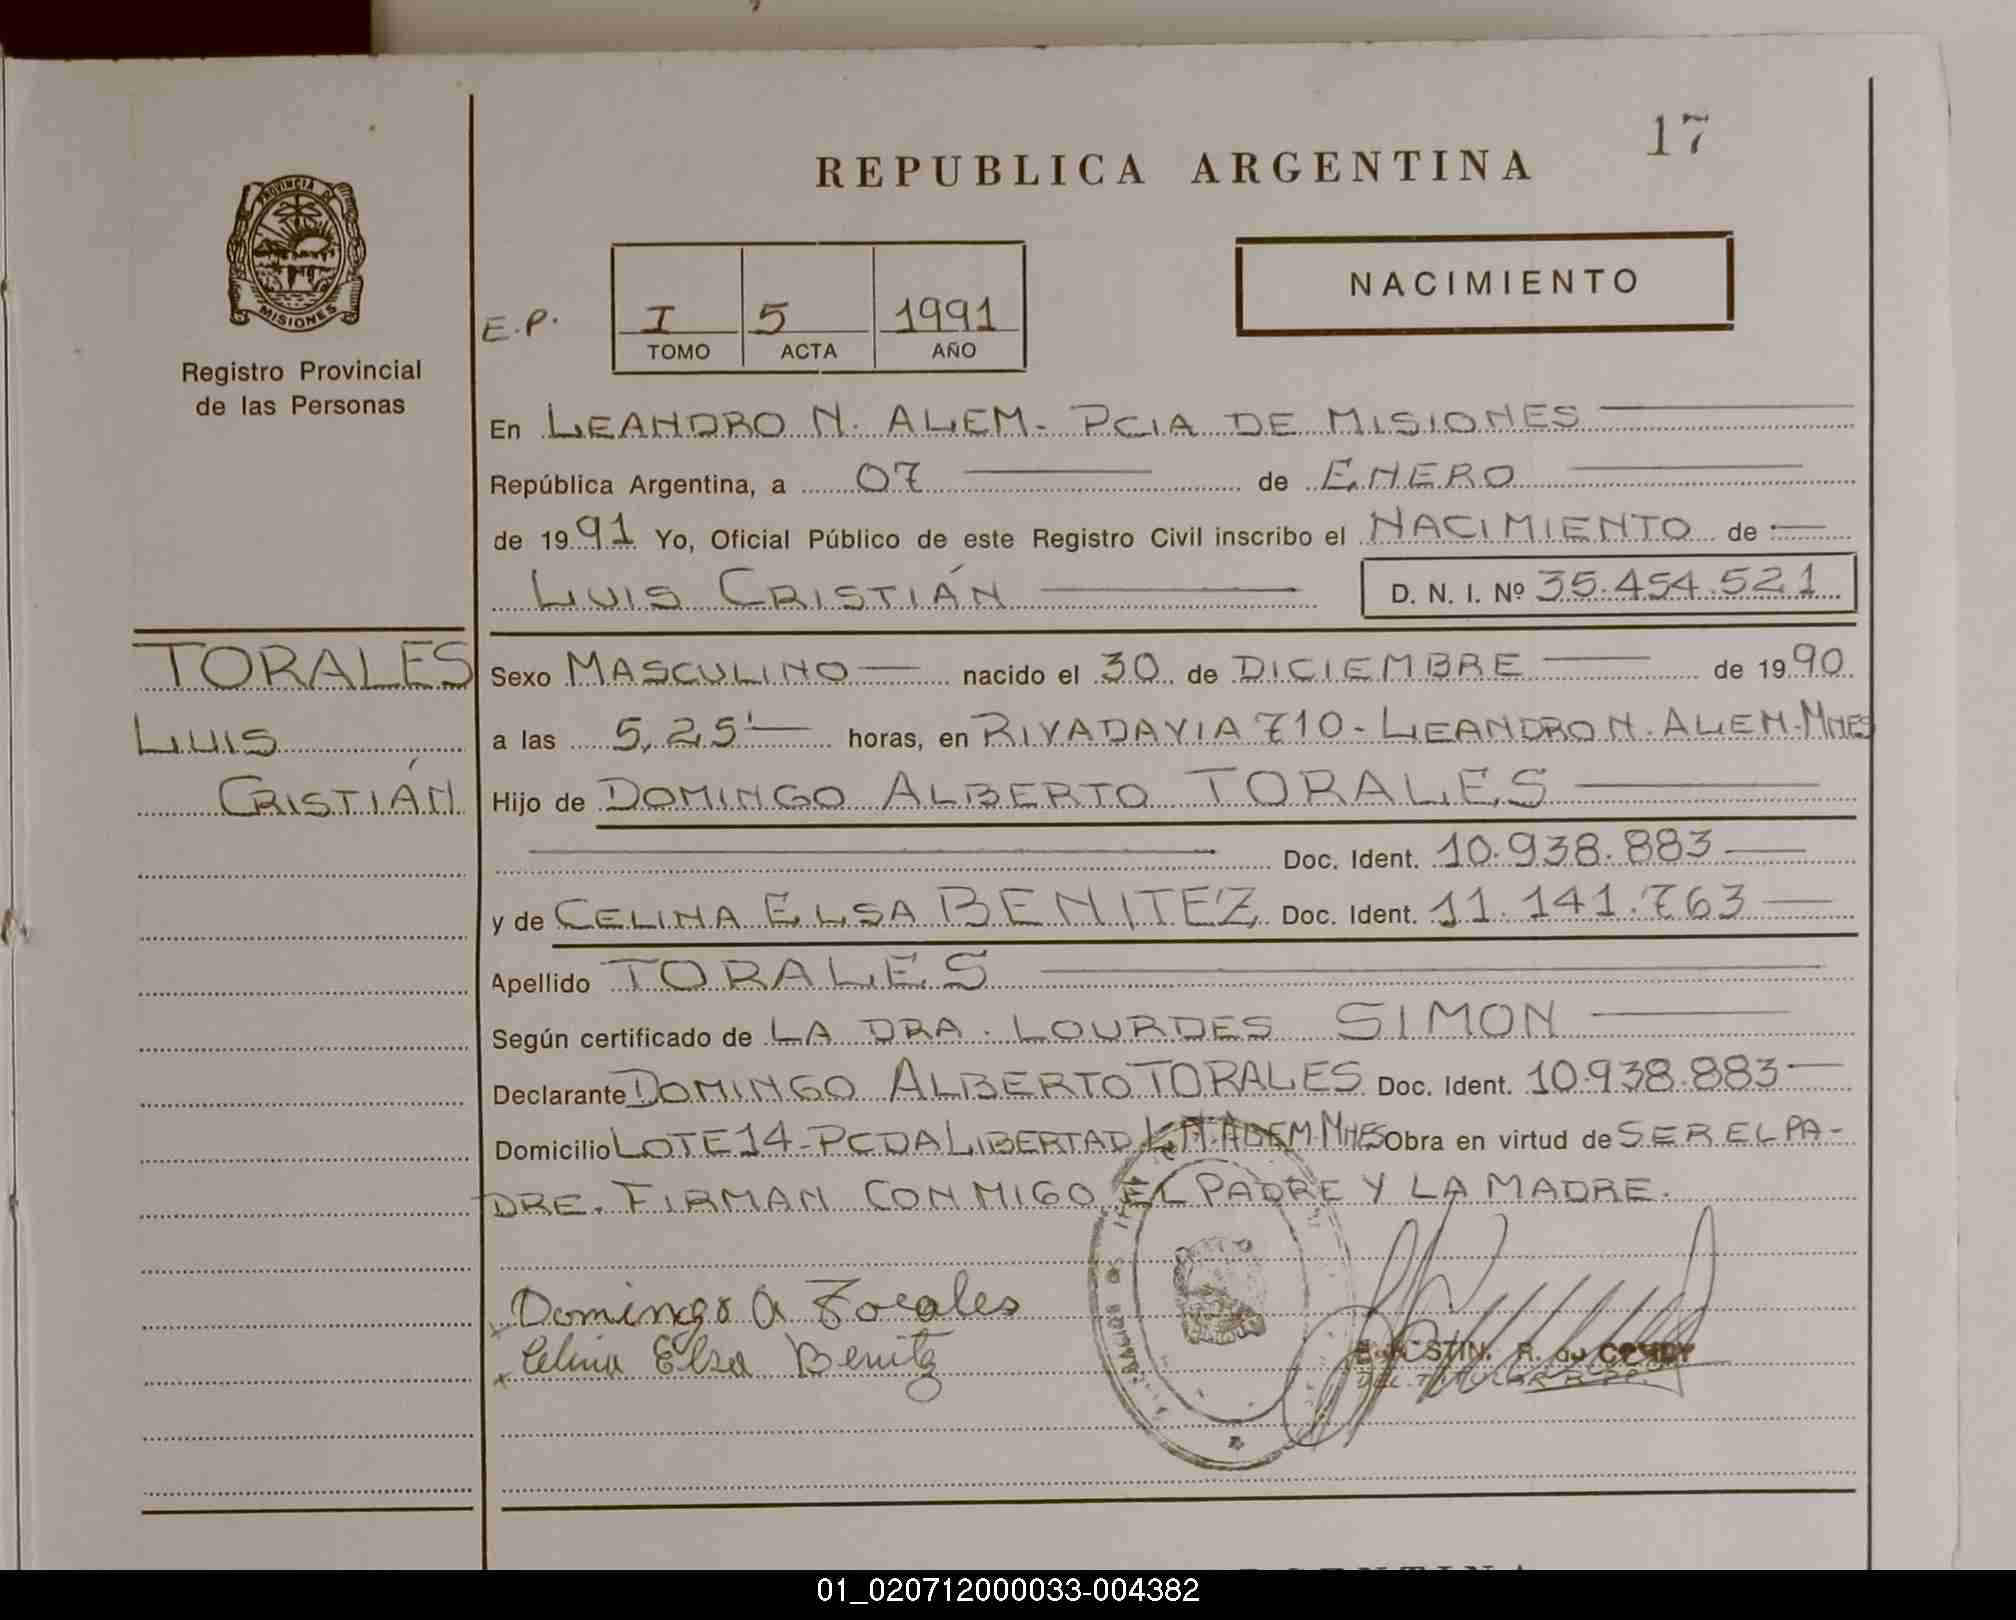 17
REPUBLICA ARGENTINA
PROVINCIA DE
MISIONES
Registro Provincial
de las Personas
NACIMIENTO
E.P.
I 5 1991
TOMO ACTA AÑO
En LEANDRO N. ALEM - PCIA DE MISIONES
República Argentina, a 07 de ENERO
de 1991 Yo, Oficial Público de este Registro Civil inscribo el NACIMIENTO de
LUIS CRISTIÁN D. N. I. Nº 35.454.521
TORALES
LUIS
CRISTIÁN
Sexo MASCULINO nacido el 30 de DICIEMBRE de 1990
a las 5,25' horas, en RIVADAVIA 710 - LEANDRO N. ALEM - MNES
Hijo de DOMINGO ALBERTO TORALES
Doc. Ident. 10.938.883
y de CELINA ELSA BENITEZ Doc. Ident. 11.141.763
Apellido TORALES
Según certificado de LA DRA. LOURDES SIMON
Declarante DOMINGO ALBERTO TORALES Doc. Ident. 10.938.883
Domicilio LOTE 14 - PCDA LIBERTAD L.N. ALEM - MNES Obra en virtud de SER EL PA-
DRE. FIRMAN CONMIGO EL PADRE Y LA MADRE.
Domingo A Torales
Celina Elsa Benitez
DEL. TITULAR R.PP.
01_020712000033-004382